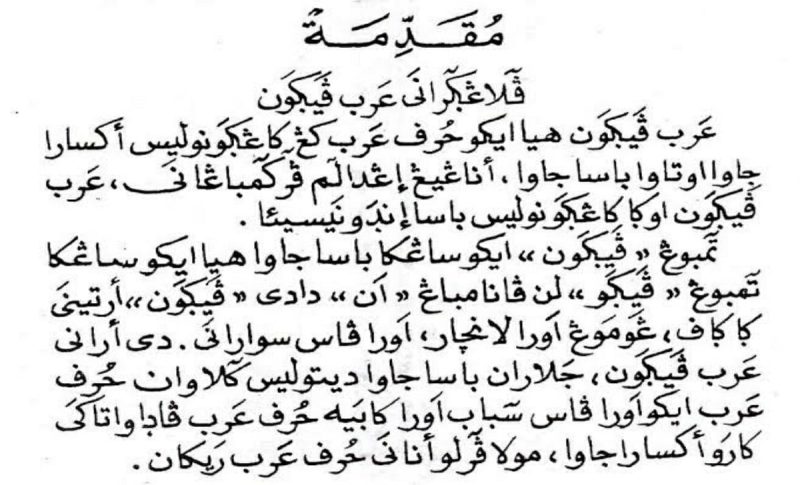 مُقَدِّمَةْ
ڤۤلاڠڮرانیٰ عرب ڤَيڮَون
عَرب ڤَيڮون هيا ايكو حُرف عَرب كڠ كاڠڮَو نوليس أكسارا
جاوا اوتاوا باسا جاوا، أناڠيڠ إڠدالۤم ڤۤركۤمباڠانیٰ، عَرب
ڤَيڮَون اوكا كاڠڮَو نوليس باسا إندَونَيسيئا.
تۤمبوڠ «ڤَيڮَون» ايكو ساڠكا باسا جاوا هيا ايكو ساڠكا
تۤمبوڠ «ڤَيڮَو» لن ڤانامباڠ «اَن» دادی «ڤَيڮَون» أرتينیَ
ڮاڮاف، ڠَومَوڠ اَورا لانچار، اَورا ڤاس سوارانیَ. دی أرانی
عَرب ڤَيڮَون، جَلاران باسا جاوا ديتوليس كۤلاوان حُرف
عَرب ايكو اَورا ڤاس سۤباب اَورا كابَيه حُرف عَرب ڤاڎا واتاكیَ
كارَو أكسارا جاوا، مولا ڤۤرلو أنانیَ حُرف عَرب رَيكان.